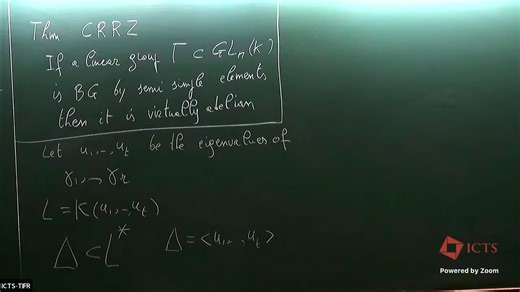 Thm CRRZ
If a linear group Γ ⊂ GL_n(K)
is BG by semi simple elements
then it is virtually abelian
Let u_1,..,u_t be the eigenvalues of
γ_1,..,γ_r
L = K(u_1,..,u_t)
Δ ⊂ L^* Δ = <u_1,..,u_t>
ICTS
Powered by Zoom
ICTS-TIFR